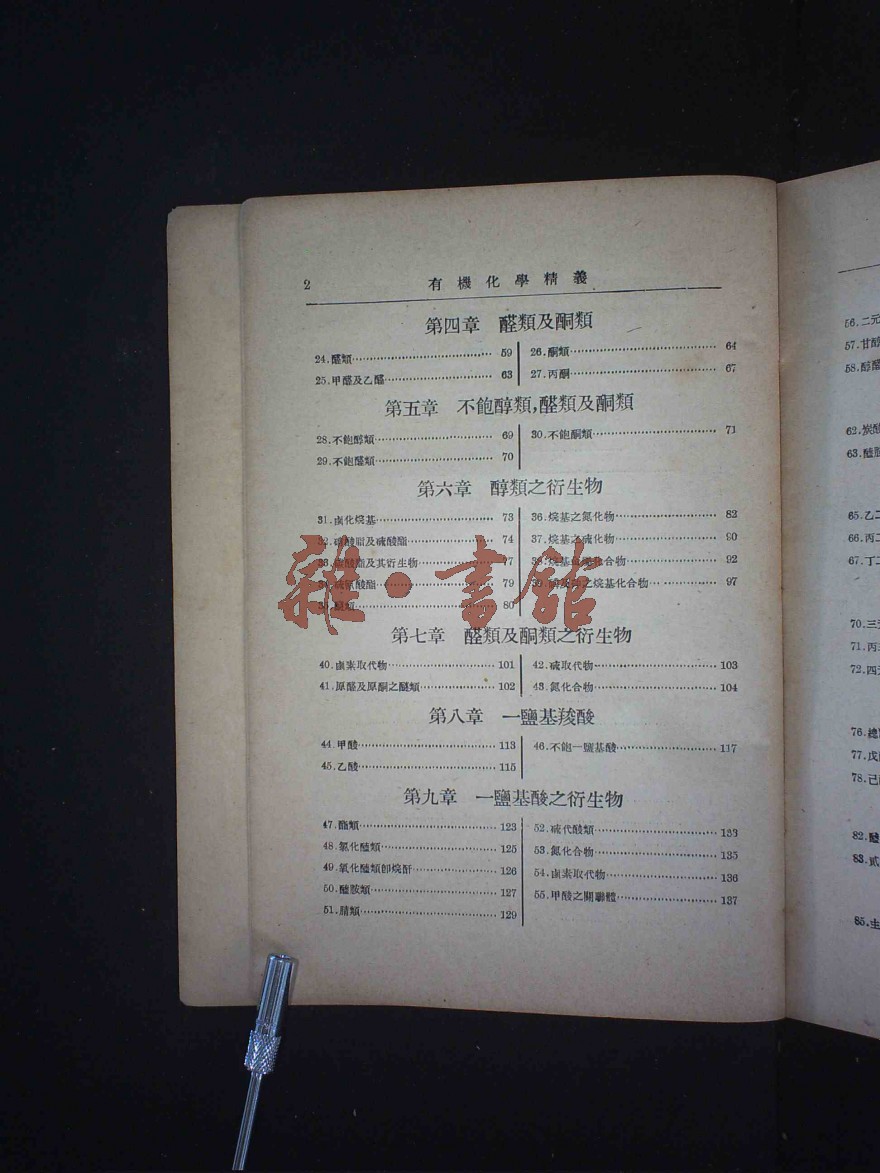 2
有機化學精義
第四章 醛類及酮類
24.醛類 59
25.甲醛及乙醛 63
26.酮類 64
27.丙酮 67
第五章 不飽醇類,醛類及酮類
28.不飽醇類 69
29.不飽醛類 70
30.不飽酮類 71
第六章 醇類之衍生物
31.鹵化烷基 73
74
酯及其衍生物 77
酸酯 79
80
36.烷基之氮化物 82
37.烷基之 化物 90
化合物 92
之烷基化合物 97
雜·書館
第七章 醛類及酮類之衍生物
40.鹵素取代物 101
41.原醛及原酮之醚類 102
42.硫取代物 103
43.氮化合物 104
第八章 一鹽基羧酸
44.甲酸 113
45.乙酸 115
46.不飽一鹽基酸 117
第九章 一鹽基酸之衍生物
47.酯類 123
48.氯化醯類 125
49.氧化醯類卽烷酐 126
50.醯胺類 127
51.腈類 129
52.硫代酸類 133
53.氮化合物 135
54.鹵素取代物 136
55.甲酸之關聯體 137
56.二元
57.甘醇
58.醇醛
62.炭酸
63.醯胺
65.乙二
66.丙二
67.丁二
70.三元
71.丙三
72.四元
76.
77.戊
78.己
82.醯
83.貳
85.